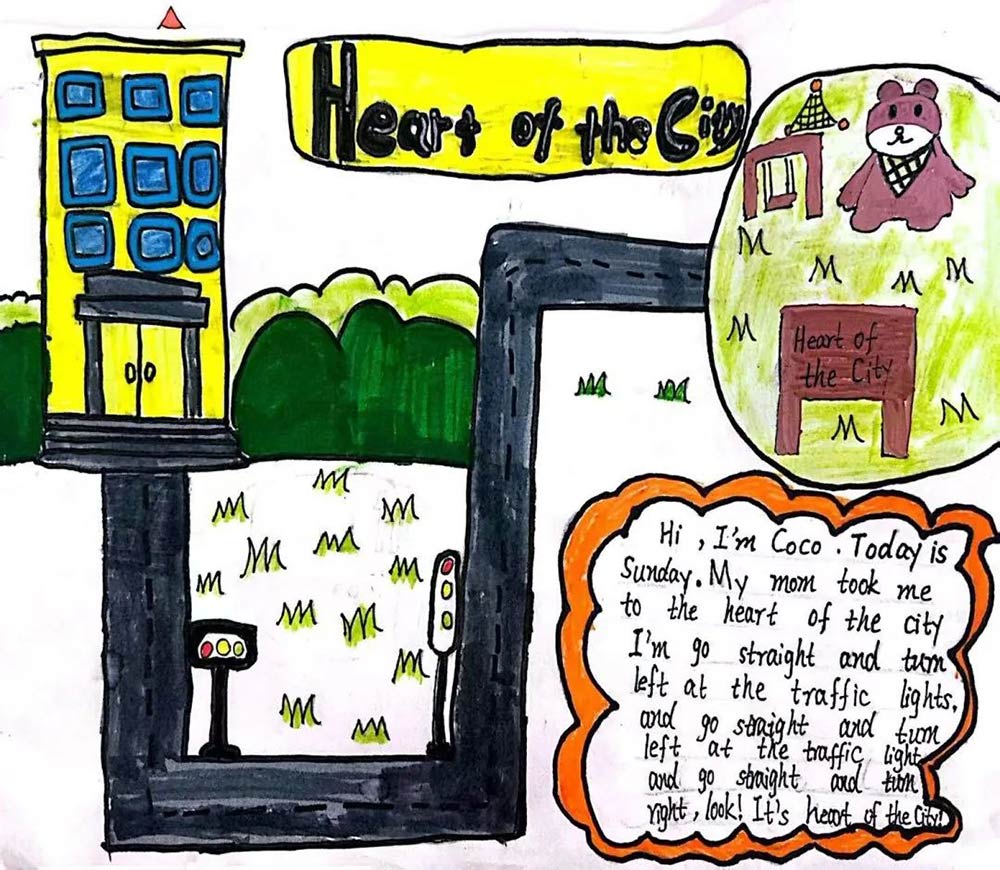 Heart of the City
Heart of
the City
Hi, I'm Coco. Today is
Sunday. My mom took me
to the heart of the city
I'm go straight and turn
left at the traffic lights,
and go straight and turn
left at the traffic light
and go straight and turn
right, look! It's heart of the City!